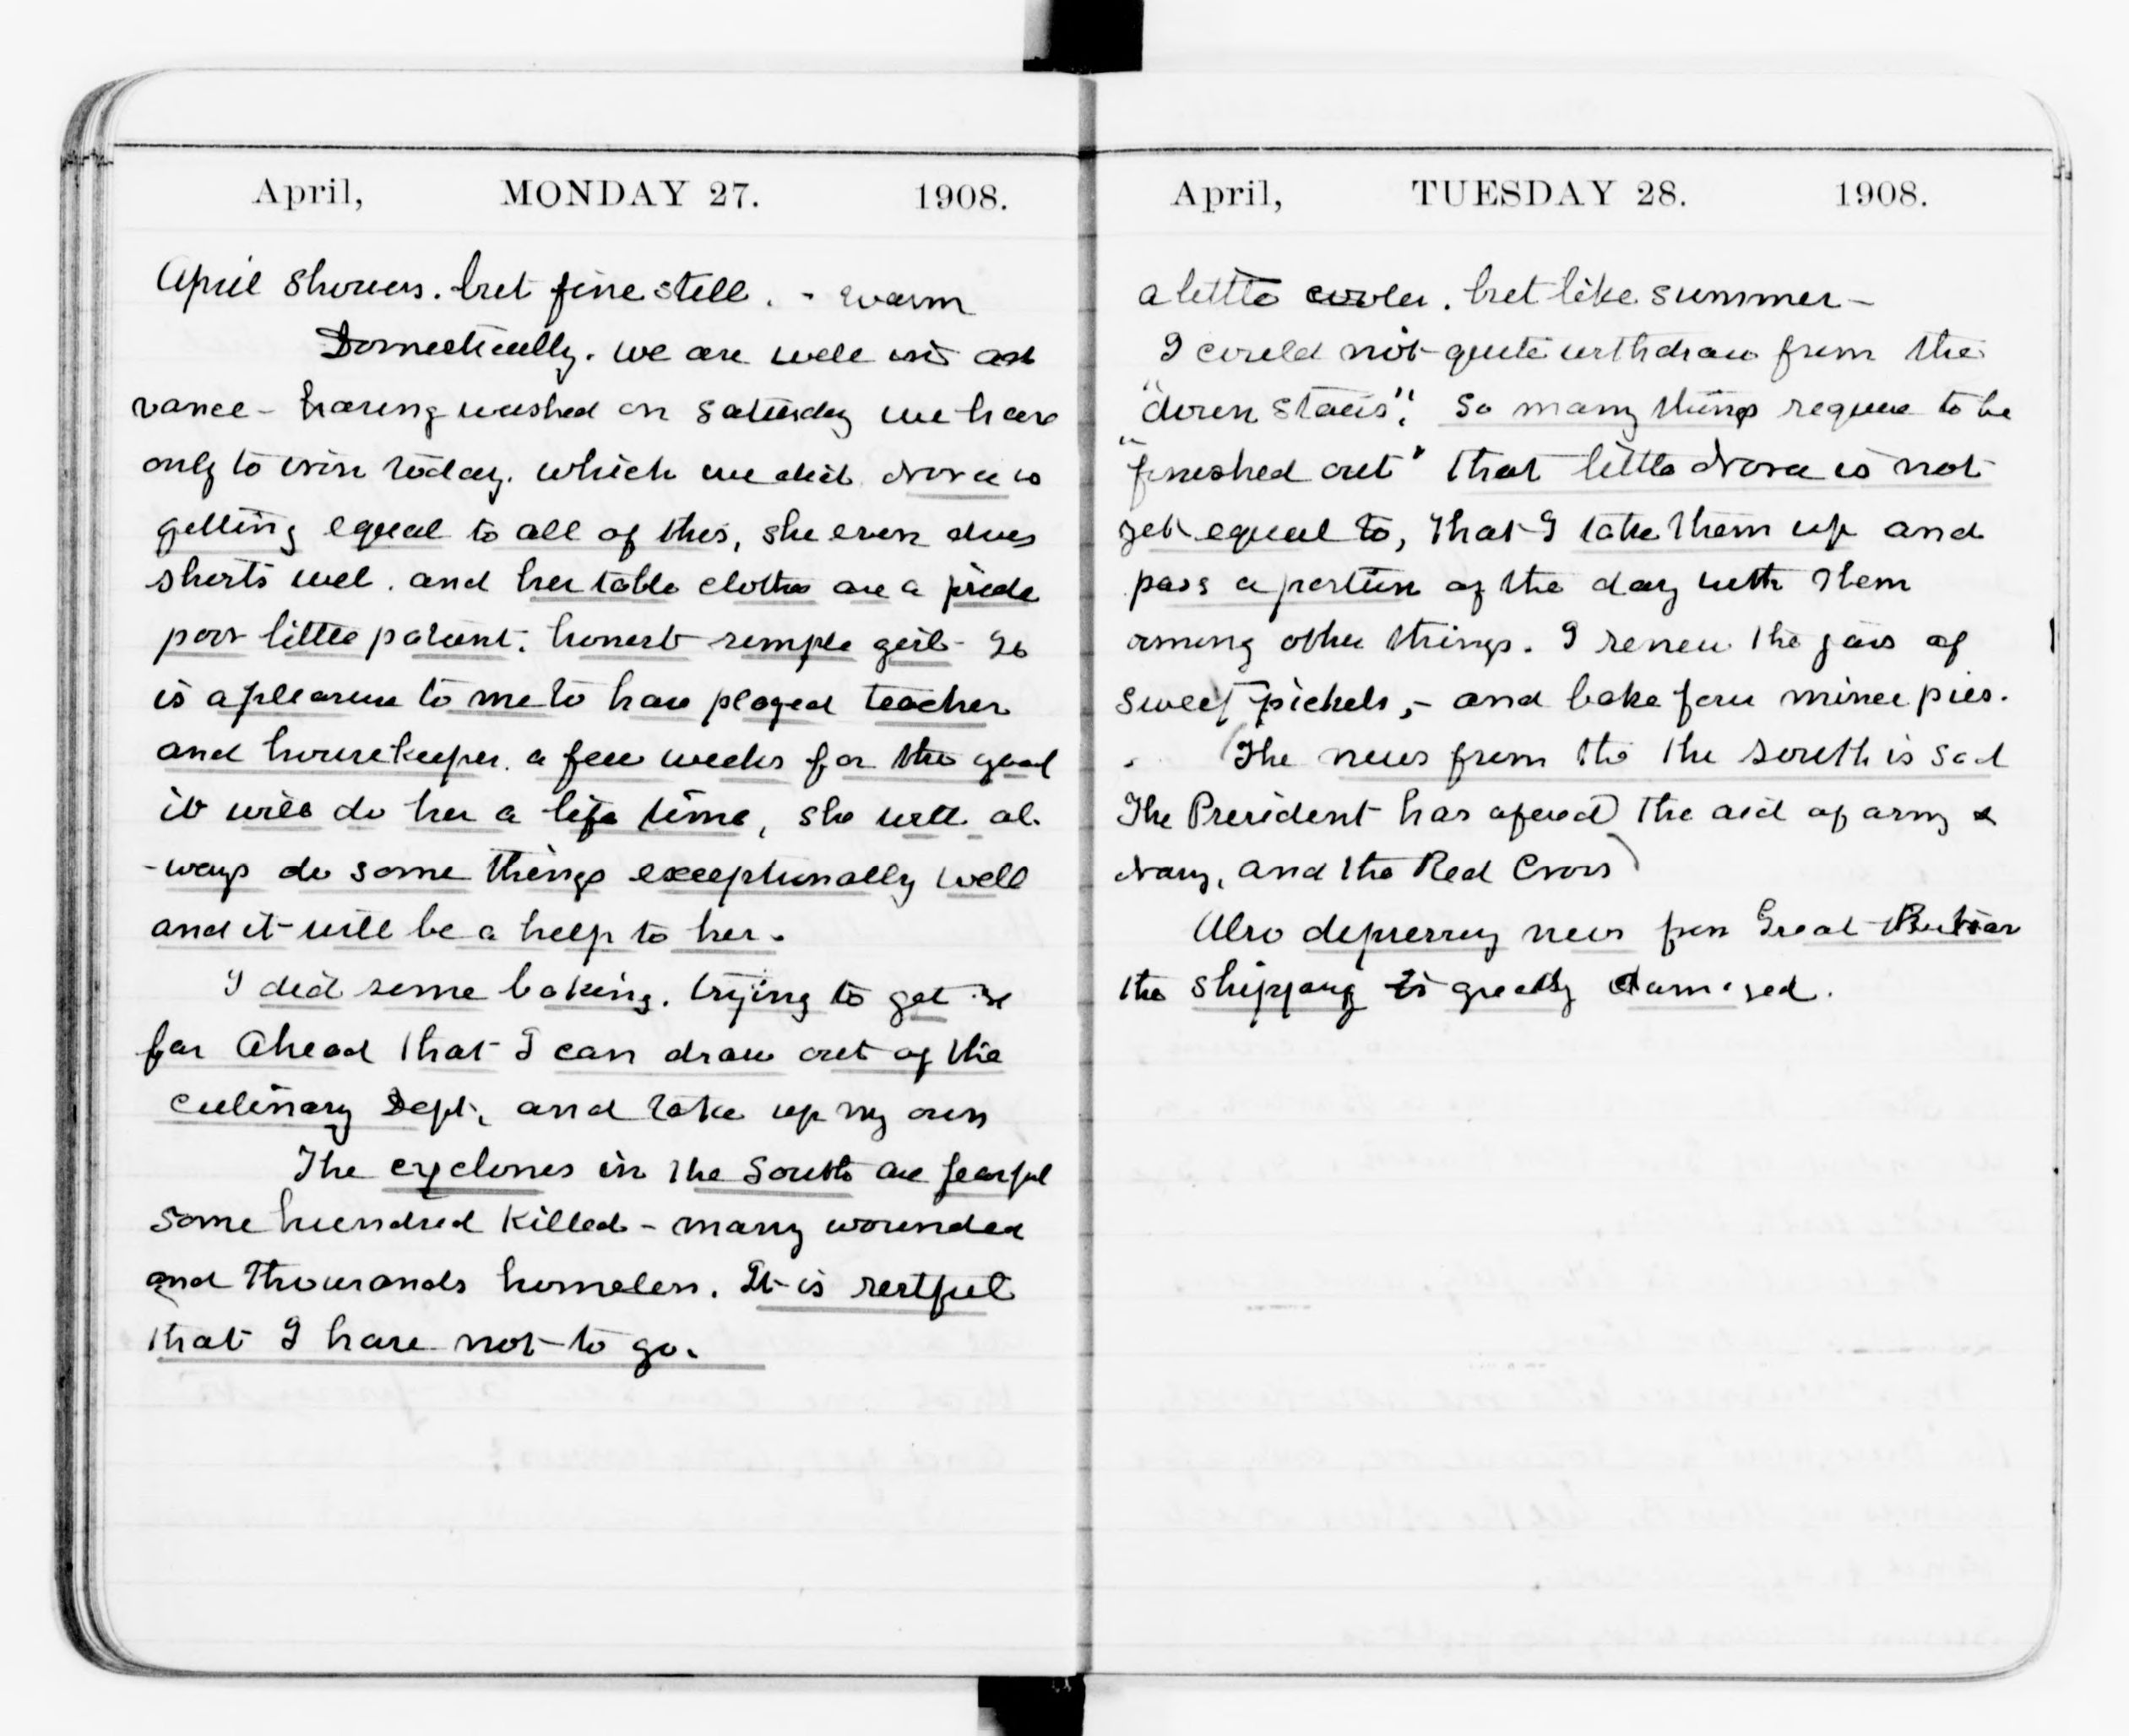 April, MONDAY 27. 1908.
April showers. but fine still. - warm
Domestically. we are well in ad
vance - having washed on Saturday we have
only to iron today. which we did. Nora is
getting equal to all of this, she even does
shirts well. and her table cloths are a pride
poor little patient. honest simple girl - It
is a pleasure to me to have played teacher
and housekeeper. a few weeks for the good
it will do her a life time, she will al-
-ways do some things exceptionally well
and it will be a help to her.
I did some baking. trying to get so
far Ahead that I can draw out of the
culinary Dept. and take up my own
The cyclones in the South are fearful
some hundred killed - many wounded
and thousands homeless. It is restful
that I have not to go.
April, TUESDAY 28. 1908.
a little cooler. but like summer -
I could not quite withdraw from the
"down stairs". So many things require to be
"finished out" that little Nora is not
yet equal to, that I take them up and
pass a portion of the day with them
among other things. I renew the jars of
sweet pickels, - and bake four mince pies.
(The news from the the South is sad
The President has offered the aid of army &
Navy, and the Red Cross)
Also depressing news from Great Britian
the shipping is greatly damaged.